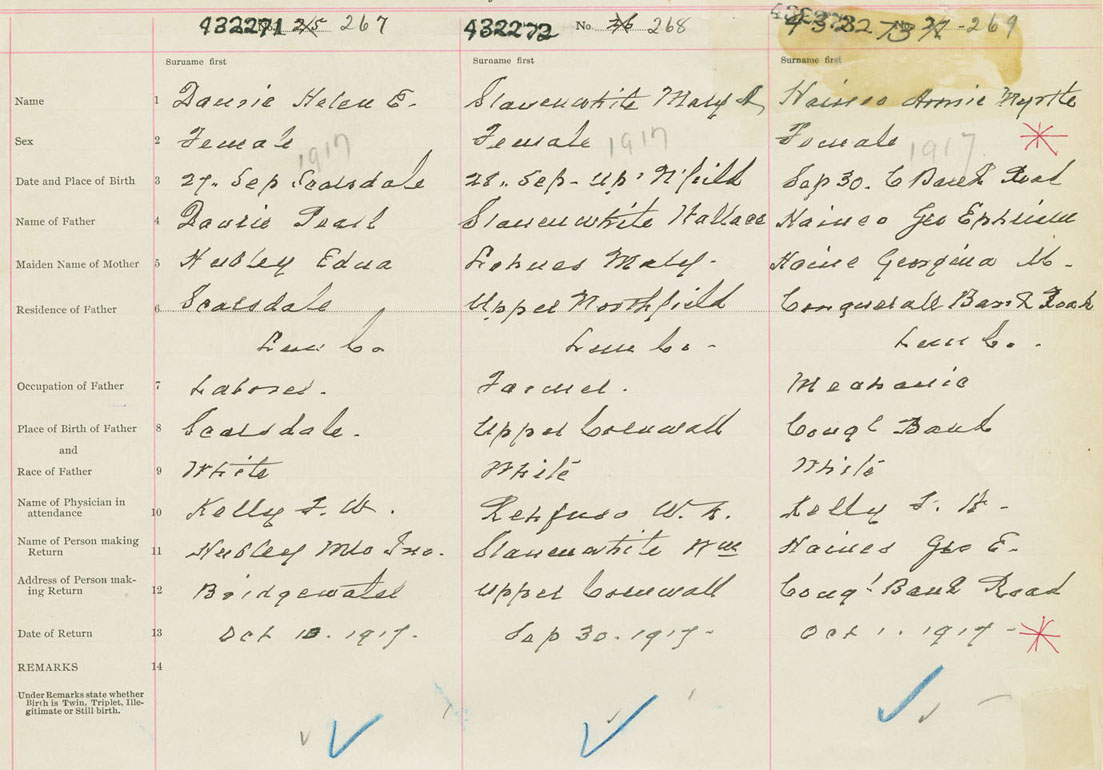 432271 25 267 432272 No. 26 268 432273 No. 27 - 269
Surname first Surname first Surname first
Name 1 Daurie Helen E. Slauenwhite Mary A Haines Annie Myrtle
Sex 2 Female Female Female
1917 1917 1917
Date and Place of Birth 3 27. Sep Scarsdale 28. Sep - Up' N'field Sep 30. C Bank Road
Name of Father 4 Daurie Pearl Slauenwhite Wallace Haines Geo Ephriam
Maiden Name of Mother 5 Hubley Edna Lohnes Mary - Haine Georgina M -
Residence of Father 6 Scarsdale Upper Northfield Conquerall Bank Road
Lun Co Lun Co - Lun Co.
Occupation of Father 7 Laborer. Farmer. Mechanic
Place of Birth of Father 8 Scarsdale. Upper Cornwall Conql Bank
and
Race of Father 9 White White White
Name of Physician in
attendance 10 Kelly F. W. Rehfuss W. N. Kelly F. W -
Name of Person making
Return 11 Hubley Mrs Jno. Slauenwhite Wm Haines Geo E -
Address of Person mak-
ing Return 12 Bridgewater Upper Cornwall Conql Bank Road
Date of Return 13 Oct 10. 1917. Sep 30. 1917 - Oct 1. 1917 -
REMARKS 14
Under Remarks state whether
Birth is Twin, Triplet, Ille-
gitimate or Still birth.